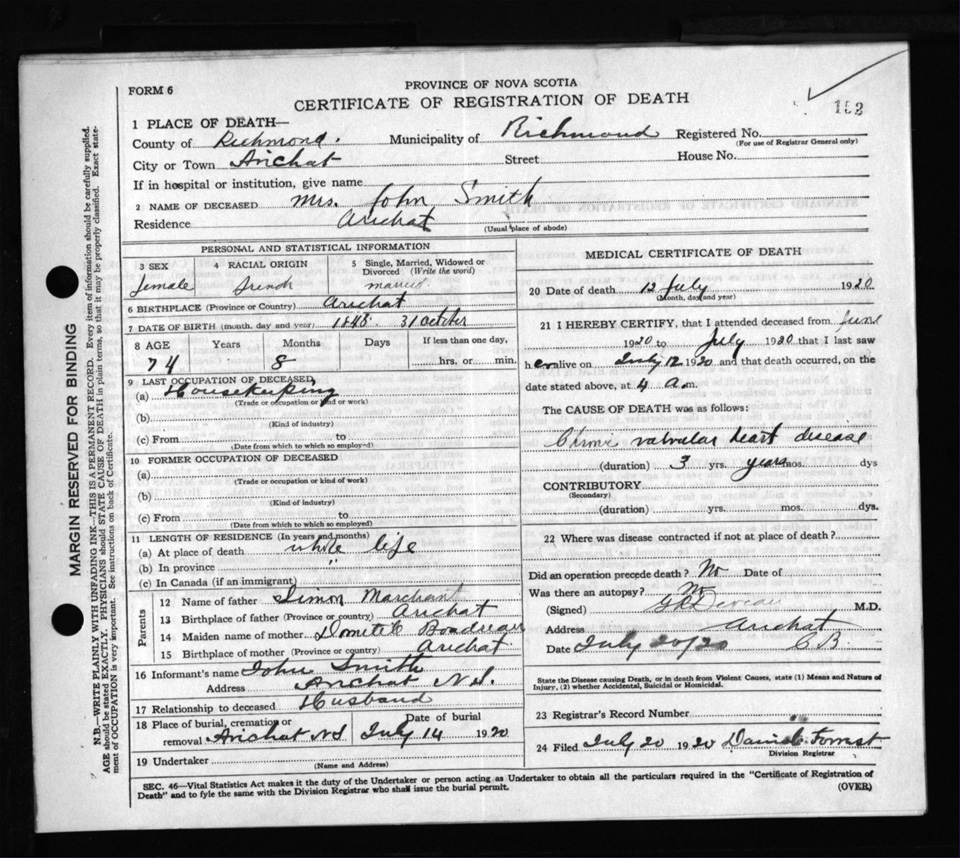 FORM 6
PROVINCE OF NOVA SCOTIA
CERTIFICATE OF REGISTRATION OF DEATH
152
1 PLACE OF DEATH—
County of Richmond. Municipality of Richmond Registered No.
(For use of Registrar General only)
City or Town Arichat Street House No.
If in hospital or institution, give name
2 NAME OF DECEASED Mrs. John Smith
Residence Arichat
(Usual place of abode)
PERSONAL AND STATISTICAL INFORMATION
3 SEX 4 RACIAL ORIGIN 5 Single, Married, Widowed or Divorced (Write the word)
female french married
6 BIRTHPLACE (Province or Country) Arichat
7 DATE OF BIRTH (month, day and year) 31 October
8 AGE Years Months Days If less than one day,
74 8 hrs. or min.
9 LAST OCCUPATION OF DECEASED
(a) Housekeeping
(Trade or occupation or kind or work)
(b)
(Kind of industry)
(c) From to
(Date from which to which so employed)
10 FORMER OCCUPATION OF DECEASED
(a)
(Trade or occupation or kind of work)
(b)
(Kind of industry)
(c) From to
(Date from which to which so employed)
11 LENGTH OF RESIDENCE (In years and months)
(a) At place of death whole life
(b) In province "
(c) In Canada (if an immigrant)
Parents
12 Name of father Simon Marchand
13 Birthplace of father (Province or country) Arichat
14 Maiden name of mother Boudreau
15 Birthplace of mother (Province or country) Arichat
16 Informant's name John Smith
Address Arichat N.S.
17 Relationship to deceased Husband
18 Place of burial, cremation or removal Arichat NS Date of burial July 14 1920
19 Undertaker
(Name and Address)
MEDICAL CERTIFICATE OF DEATH
20 Date of death 12 July 1920
(Month, day and year)
21 I HEREBY CERTIFY, that I attended deceased from June
1920 to July 1920 that I last saw
her alive on July 12 1920 and that death occurred, on the
date stated above, at 4 a.m.
The CAUSE OF DEATH was as follows:
Chronic valvular heart disease
(duration) 3 yrs. years mos. dys
CONTRIBUTORY
(Secondary)
(duration) yrs. mos. dys.
22 Where was disease contracted if not at place of death?
Did an operation precede death? No Date of
Was there an autopsy? No
(Signed) Deveau M.D.
Address Arichat
Date July 20/20 C.B.
State the Disease causing Death, or in death from Violent Causes, state (1) Means and Nature of
Injury, (2) whether Accidental, Suicidal or Homicidal.
23 Registrar's Record Number
24 Filed July 20 1920 Daniel Forrest
Division Registrar
SEC. 46—Vital Statistics Act makes it the duty of the Undertaker or person acting as Undertaker to obtain all the particulars required in the "Certificate of Registration of
Death" and to fyle the same with the Division Registrar who shall issue the burial permit.
(OVER)
MARGIN RESERVED FOR BINDING
N.B.—WRITE PLAINLY WITH UNFADING INK—THIS IS A PERMANENT RECORD. Every item of information should be carefully supplied.
AGE should be stated EXACTLY. PHYSICIANS should STATE CAUSE OF DEATH in plain terms, so that it may be properly classified. Exact state-
ment of OCCUPATION is very important. See instructions on back of Certificate.